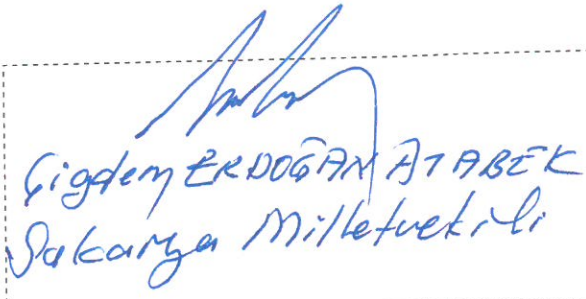 Çiğdem ERDOĞAN ATABEK
Sakarya Milletvekili